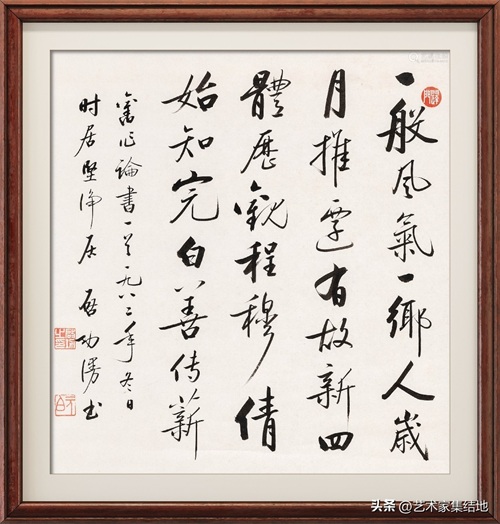 一般风氣一鄉人歲
月推遷有故新四
體歷觀程穆倩
始知完白善传薪
舊作論書一首一九八二年冬日
时居坚净居 启功漫书
头条 @艺术家集结地